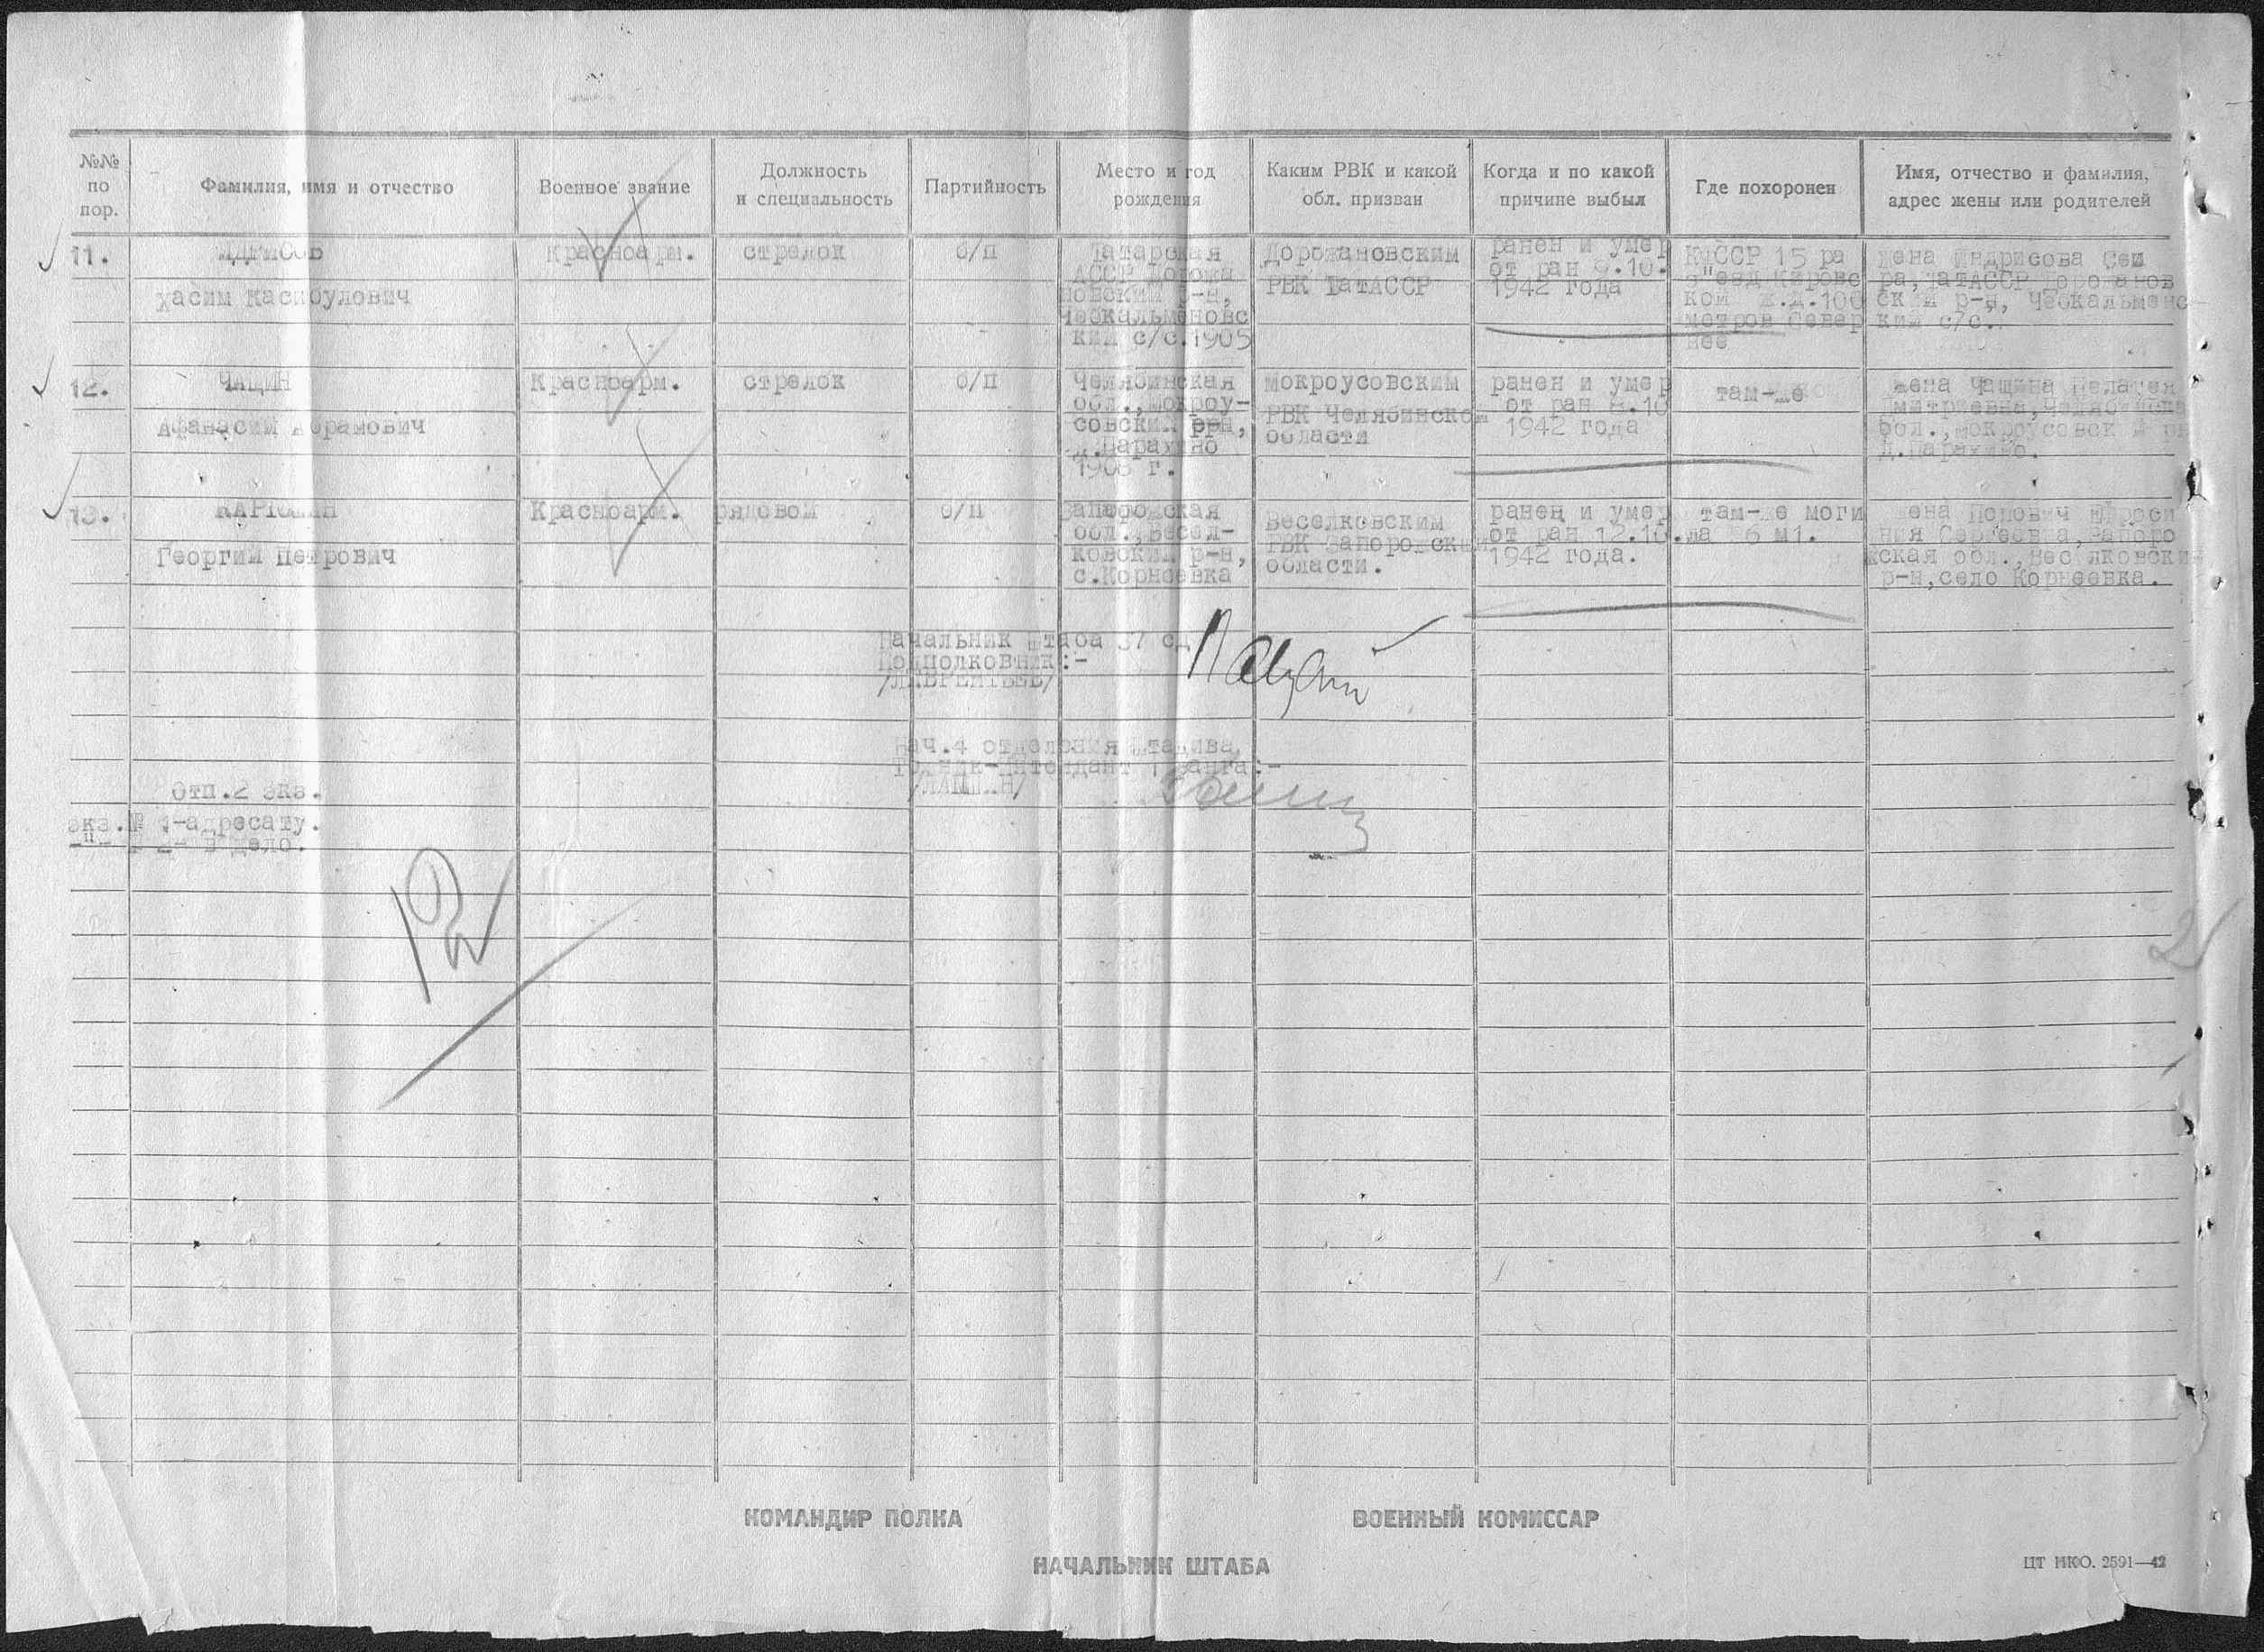 №№ по пор.
Фамилия, имя и отчество
Военное звание
Должность и специальность
Партийность
Место и год рождения
Каким РВК и какой обл. призван
Когда и по какой причине выбыл
Где похоронен
Имя, отчество и фамилия, адрес жены или родителей
11.
Хасим Касибулович
Красноарм.
стрелок
б/п
Татарская
АССР Дорожа
новский р-н,
Чебкальменовс
кий с/с.1905
Дорожановским
РВК ТатАССР
ранен и умер
от ран 9.10.
1942 года
КФССР 15 ра
з"езд Кировс
кой ж.д.100
метров Север
нее
жена Индрисова
ра, ТатАССР Дорожанов
ский р-н,
кий с/с.
12.
ЧАЩИН
Афанасий Абрамович
Красноарм.
стрелок
б/п
Челябинская
обл., Мокроу-
совский ррн,
д.Парахино
1908 г.
Мокроусовским
РВК Челябинской
области
ранен и умер
от ран 8.10
1942 года
там-же
жена Чащина Пелагея
Дмитриевна, Челябинска
обл., Мокроусовск й рн
д.Парахино.
13.
Георгий Петрович
Красноарм.
рядовой
б/п
Запорожская
обл., Весел-
ковский р-н,
с.Корнеевка
Веселковским
РВК Запорожской
области.
ранен и умер
от ран 12.10.
1942 года.
там-же моги
ла 6 м1.
жена Попович Ефроси
ния Сергеевна, Запоро
жская обл., Вес лковский
р-н, село Корнеевка.
Начальник штаба 37 сд
Подполковник:-
/ЛАВРЕНТЬЕВ/
Нач.4 отделения Штадива,
Техник-Интендант 1 ранга:-
Отп.2 экз.
экз.№ 1-адресату.
-"- № 2- в дело.
КОМАНДИР ПОЛКА
ВОЕННЫЙ КОМИССАР
НАЧАЛЬНИК ШТАБА
ЦТ НКО. 2591—42